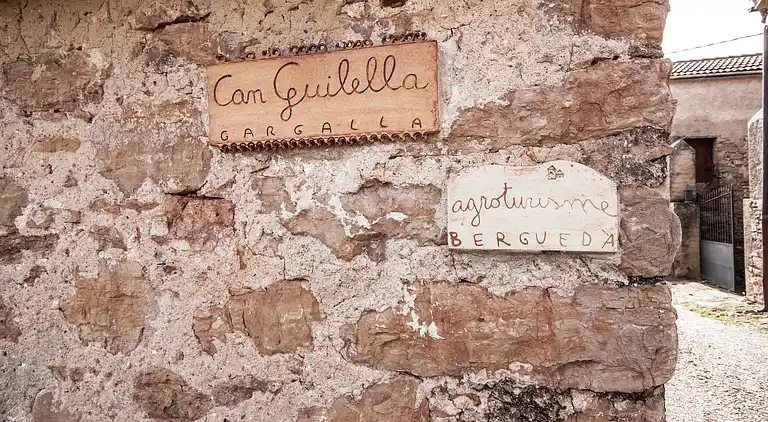 Can Guilella
GARGALLA
agroturisme
BERGUEDÀ